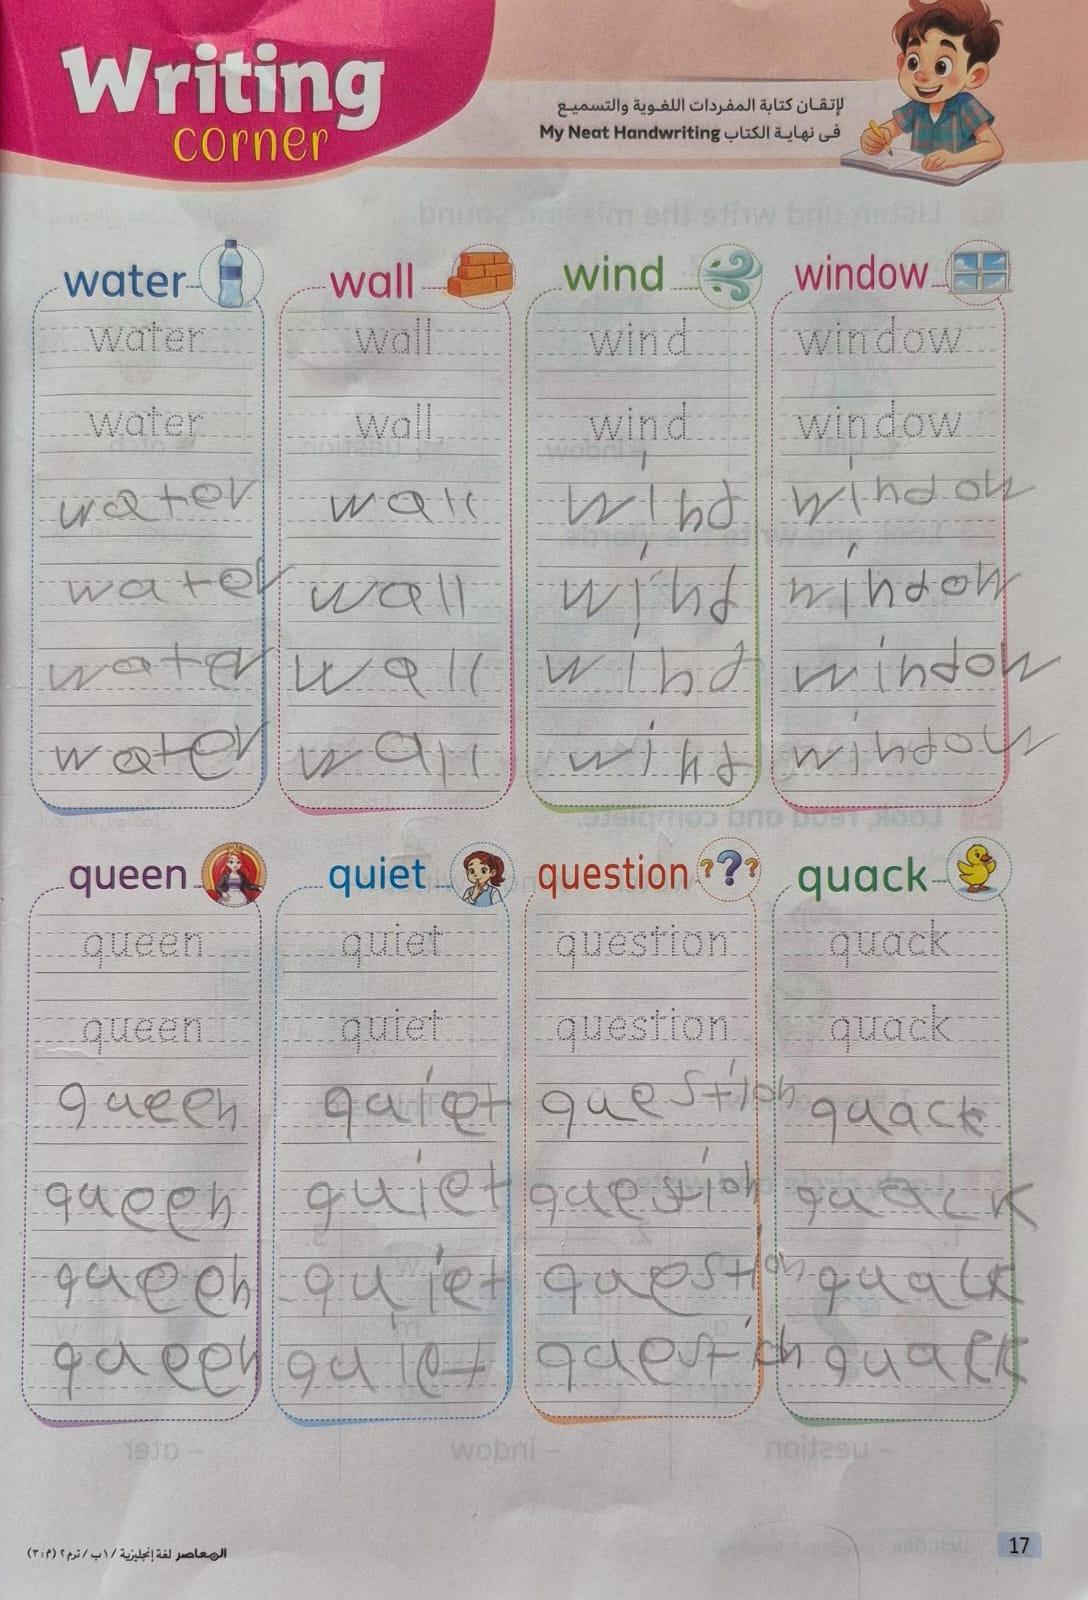 Writing
corner
لإتقان كتابة المفردات اللغوية والتسميع
فى نهاية الكتاب My Neat Handwriting
water wall wind window
water wall wind window
water wall wind window
water wall wind window
water wall wind window
water wall wind window
water wall wind window
queen quiet question quack
queen quiet question quack
queen quiet question quack
queen quiet question quack
queen quiet question quack
queen quiet question quack
queen quiet question quack
المعاصر لغة إنجليزية / ١ب / ترم ٢ (م: ٣)
17